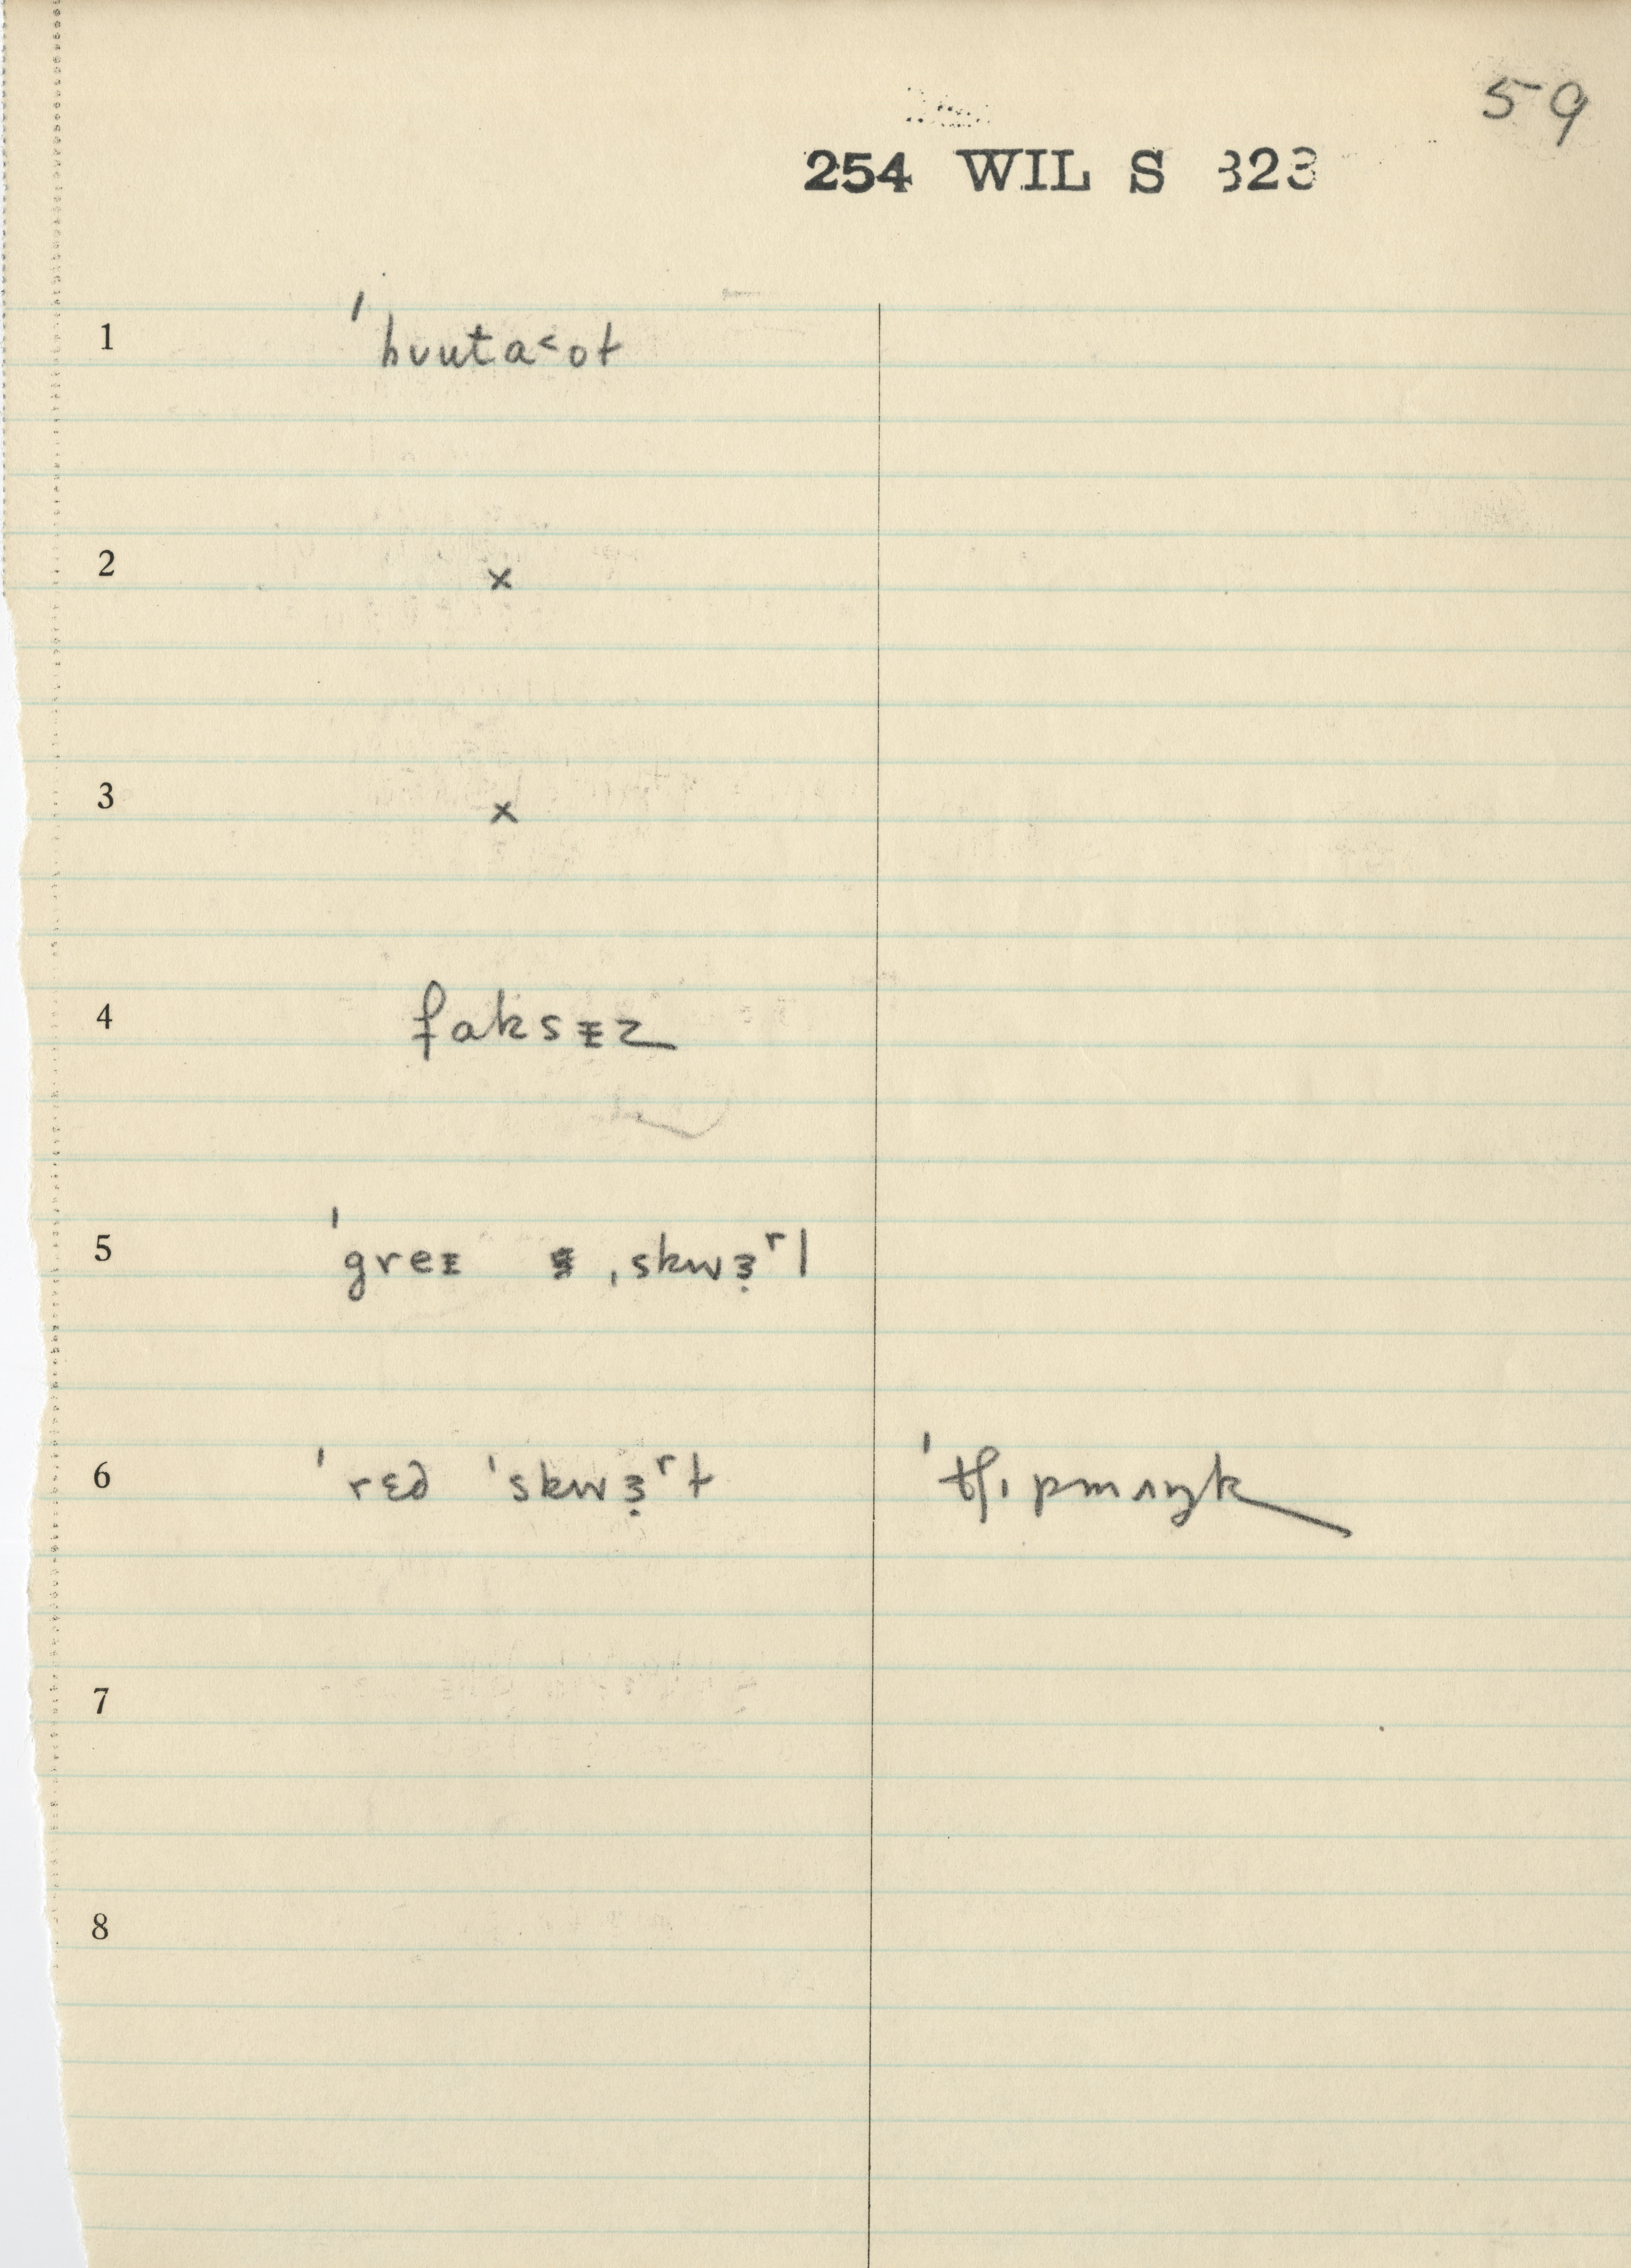 59
254 WIL S 323
1 ˈhuuta˂ot
2 ×
3 ×
4 faksɪz
5 ˈgreɪ ˌskwɜ̣ʳl
6 ˈrɛd ˈskwɜ̣ʳɫ ˈtʃɪpmʌŋk
7
8